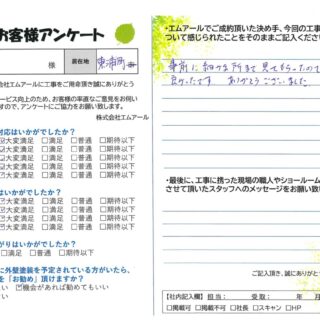 お客様アンケート
様
居住地
東海市
会社エムアールに工事をご用命頂き誠にありがとう
ービス向上のため、お客様の率直なご意見をお伺い
すので、アンケートにご協力をお願い致します。
株式会社エムアール
対応はいかがでしたか？
☑大変満足 □満足 □普通 □期待以下
☑大変満足 □満足 □普通 □期待以下
☑大変満足 □満足 □普通 □期待以下
☑大変満足 □満足 □普通 □期待以下
はいかがでしたか？
大変満足 □満足 □普通 □期待以下
大変満足 □満足 □普通 □期待以下
大変満足 □満足 □普通 □期待以下
がりはいかがでしたか？
足 □満足 □普通 □期待以下
に外壁塗装を予定されている方がいたら、
を「お勧め」頂けますか？
い ☑機会があれば勧めてもいい
い
・エムアールでご成約頂いた決め手、今回の工事
ついて感じられたことをそのままご記入ください
事前に細かな所まで見てもらったので
良かったです ありがとうございました。
・最後に、工事に携った現場の職人やショールーム
させて頂いたスタッフへのメッセージをお願い致
ご記入頂き、誠にありがと
【社内記入欄】 担当： 受取： 年 月
□掲載可 □掲載不可 □社長 □スキャン □HP